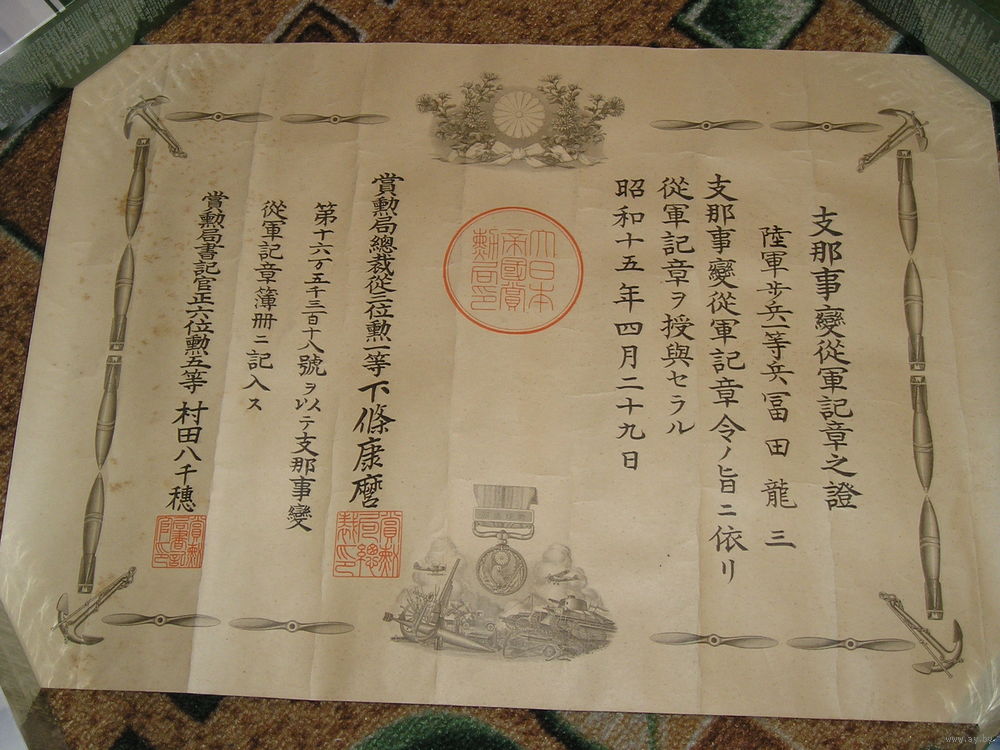 支那事變從軍記章之證
陸軍歩兵一等兵冨田龍三
支那事變從軍記章令ノ旨ニ依リ
從軍記章ヲ授與セラル
昭和十五年四月二十九日
大日本
帝國賞
勲局印
賞勲局總裁從三位勲一等下條康麿
賞勲
局總
裁印
第十六万五千三百十八號ヲ以テ支那事變
從軍記章簿册ニ記入ス
賞勲局書記官正六位勲五等村田八千穗
賞勲
局書記
官印
www.ay.by